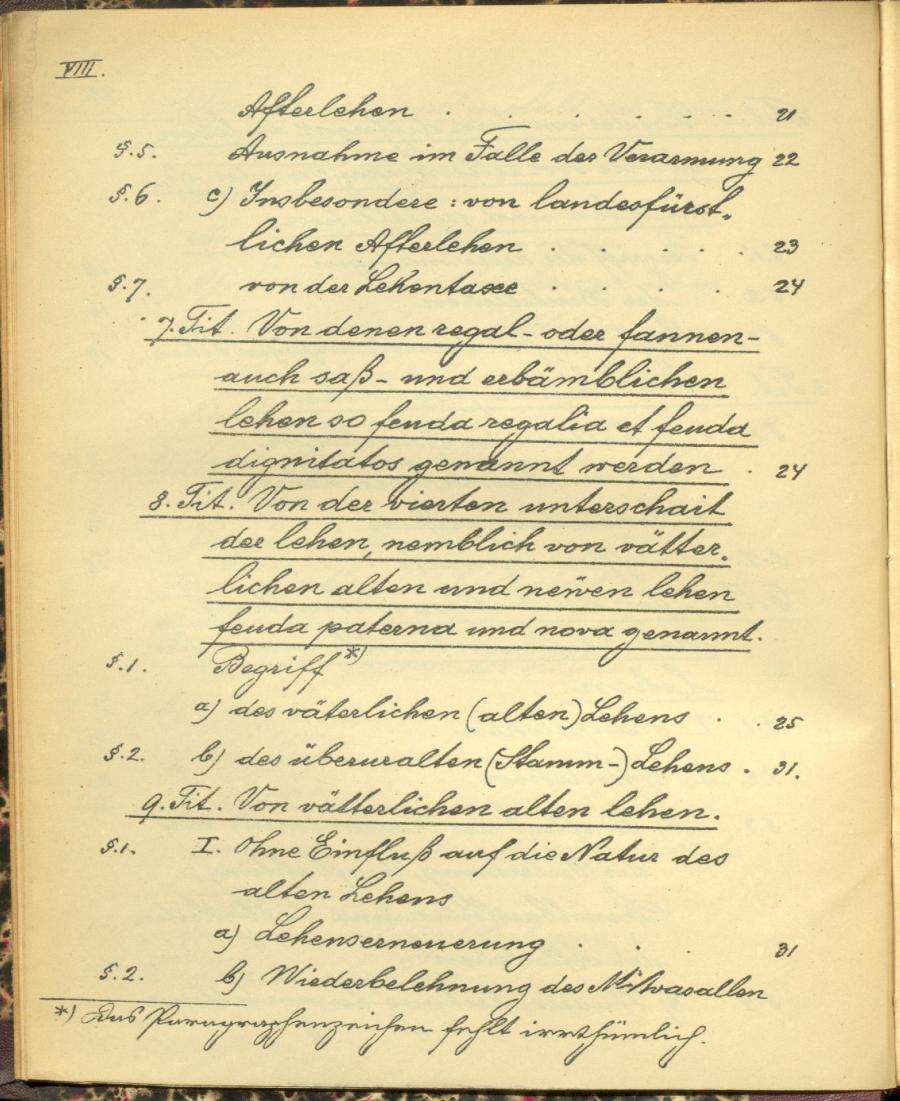 VIII.
Afterlehen . . . . . . 21
§.5. Ausnahme im Falle der Verarmung 22
§.6. c) Insbesondere: von landesfürst-
lichen Afterlehen . . . . . 23
§.7. von der Lehentaxe . . . . 24
7. Tit. Von denen regal- oder fannen-
auch saß- und erbämblichen
lehen so feuda regalia et feuda
dignitatos genannt werden . 24
8. Tit. Von der vierten unterschait
der lehen, nemblich von vätter-
lichen alten und neüen lehen
feuda paterna und nova genannt.
§.1. Begriff *)
a) des väterlichen (alten) Lehens . . 25
§.2. b) des überuralten (Stamm-) Lehens . 31.
9. Tit. Von vätterlichen alten lehen.
§.1. I. Ohne Einfluß auf die Natur des
alten Lehens
a) Lehenserneuerung . . . 31
§.2. b) Wiederbelehnung des Mitvasallen
*) Das Paragraphenzeichen fehlt irrthümlich.